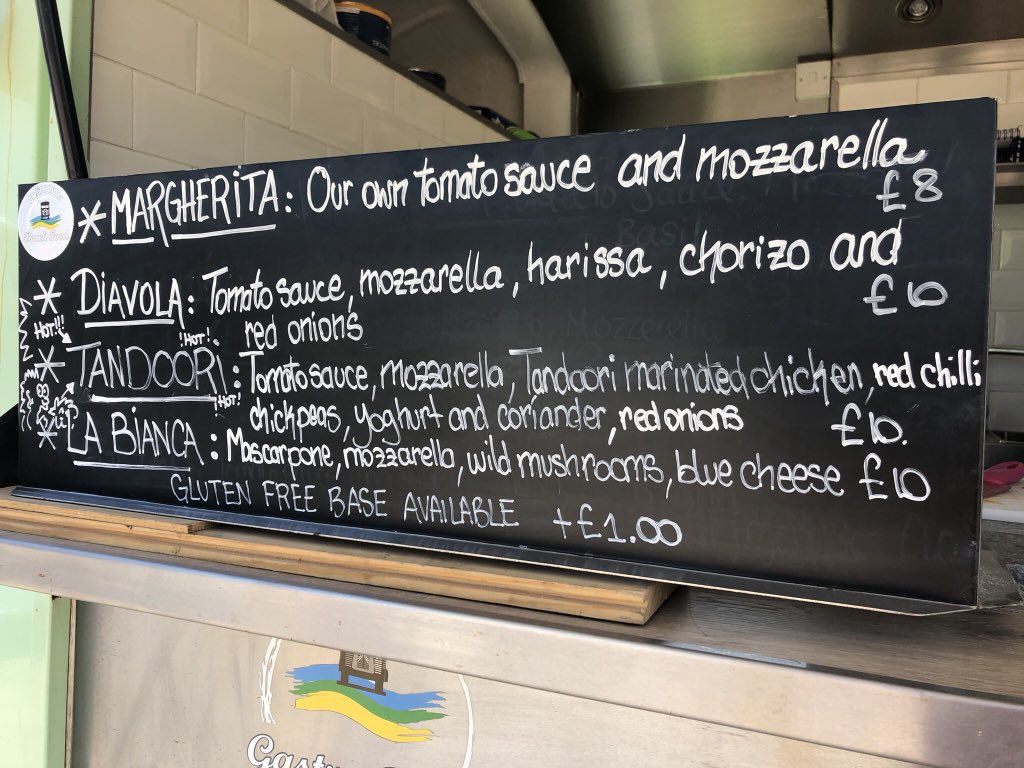 * MARGHERITA: Our own tomato sauce and mozzarella
£8
* DIAVOLA: Tomato sauce, mozzarella, harissa, chorizo and
red onions
£10
HOT!!!
!HOT!
* TANDOORI: Tomato sauce, mozzarella, Tandoori marinated chicken, red chilli
HOT!
chickpeas, yoghurt and coriander, red onions £10.
* LA BIANCA: Mascarpone, mozzarella, wild mushrooms, blue cheese £10
GLUTEN FREE BASE AVAILABLE +£1.00